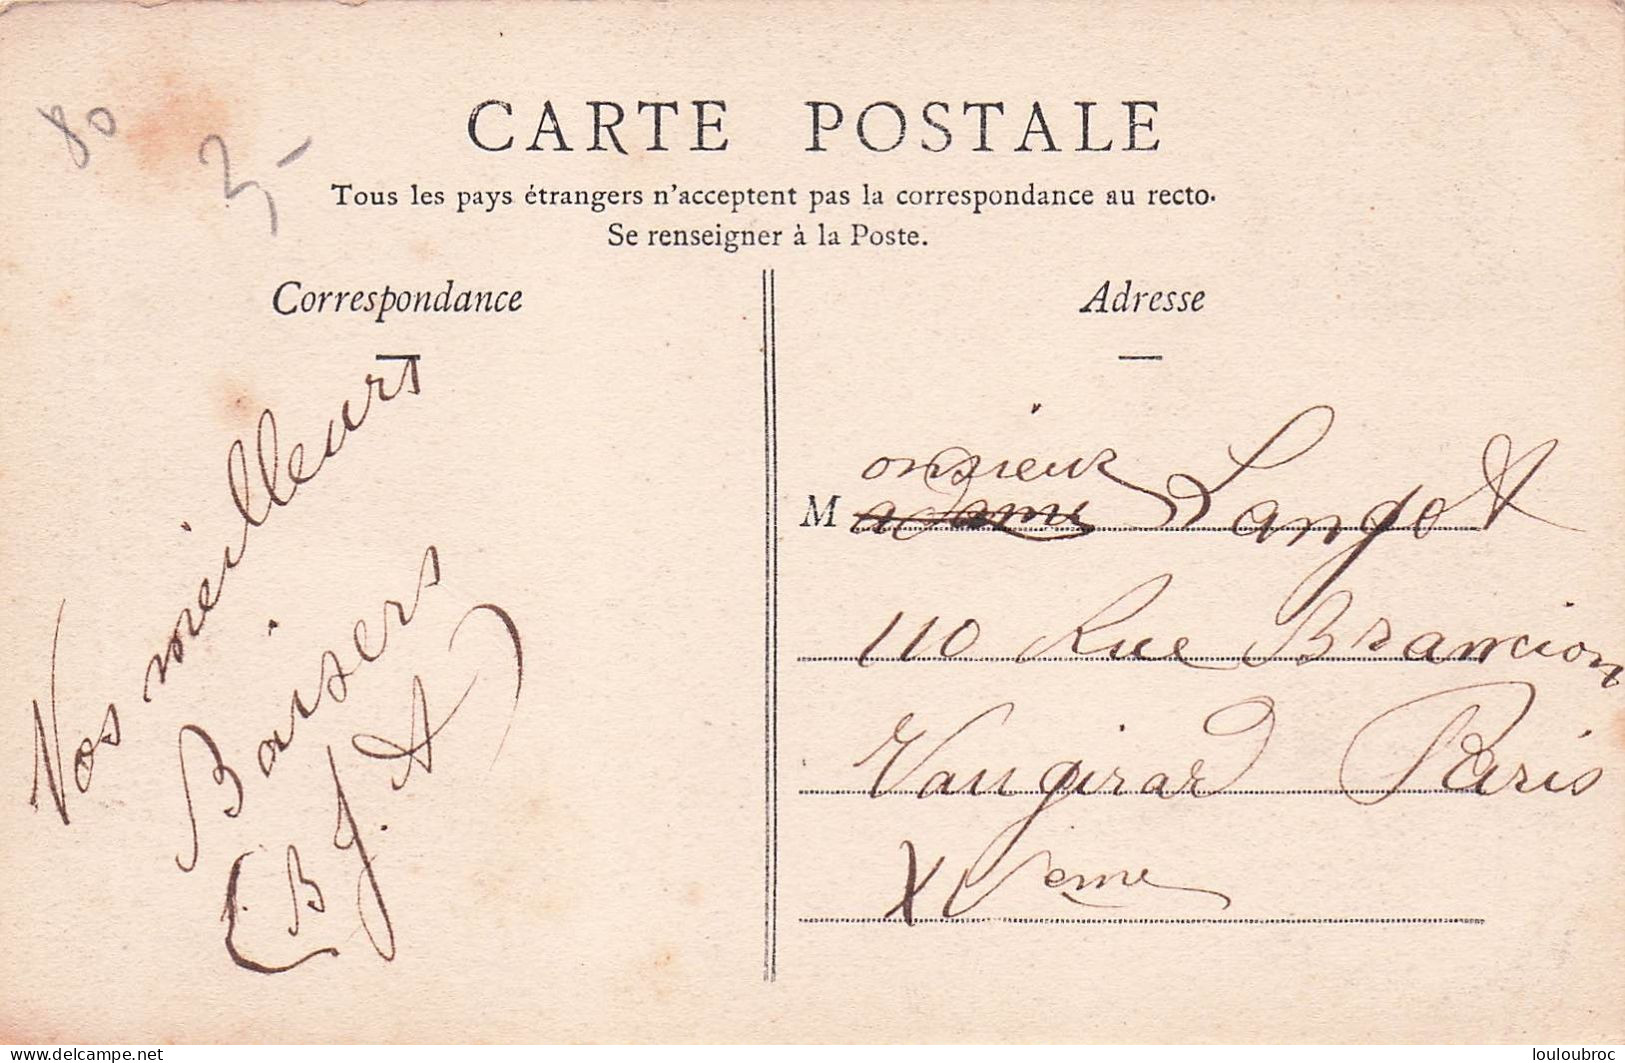 80
3,-
CARTE POSTALE
Tous les pays étrangers n'acceptent pas la correspondance au recto.
Se renseigner à la Poste.
Correspondance
Vos meilleurs
Baisers
Adresse
onsieur
Madame Langot
110 Rue Brancion
Vaugirard Paris
XVeme
delcampe.net
louloubroc